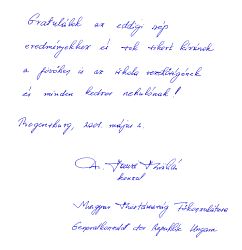 Gratulálok az eddigi szép
eredményekhez és sok sikert kívánok
a jövőben is az iskola vezetőségének
és minden kedves tanulónak!
Regensburg, 2001. május 2.
Dr. Miklós
konzul
Magyar Köztársaság Főkonzulátusa
Generalkonsulat der Republik Ungarn